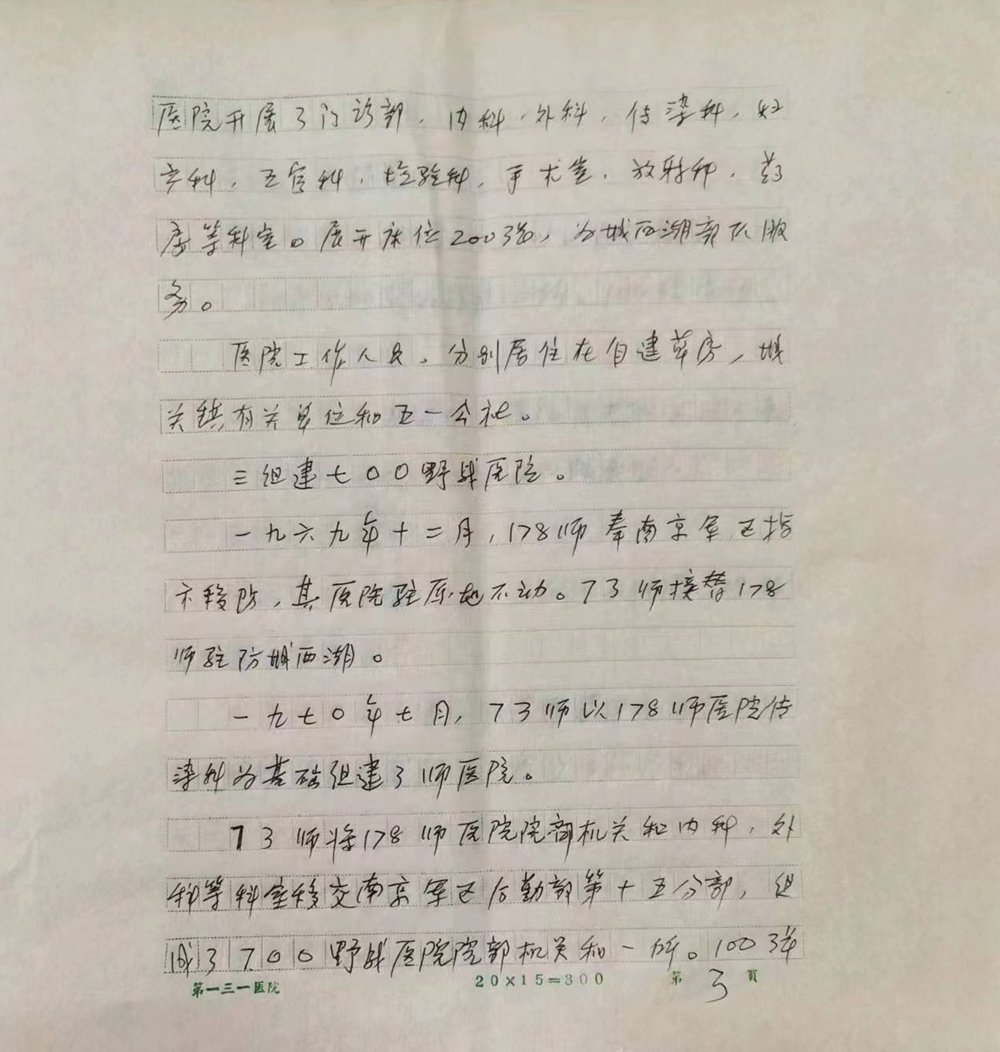 医院开展了门诊部，内科，外科，传染科，妇
产科，五官科，检验科，手术室，放射科，药
房等科室。展开床位200张，为城西湖部队服
务。
医院工作人员，分别居住在自建草房，城
关镇有关单位和五一公社。
三组建七〇〇野战医院。
一九六九年十二月，178师奉南京军区指
示移防，其医院驻原地不动。73师接替178
师驻防城西湖。
一九七〇年七月，73师以178师医院传
染科为基础组建了师医院。
73师将178师医院院部机关和内科，外
科等科室移交南京军区后勤部第十五分部，组
成了700野战医院院部机关和一所。100张
第一三一医院 20×15=300 第3页